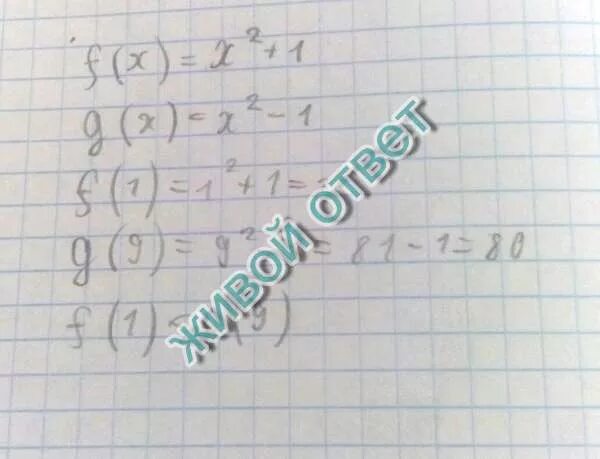 f(x) = x² + 1
g(x) = x² - 1
f(1) = 1² + 1 =
g(9) = 9² = 81 - 1 = 80
f(1) < (9)
ЖИВОЙ ОТВЕТ